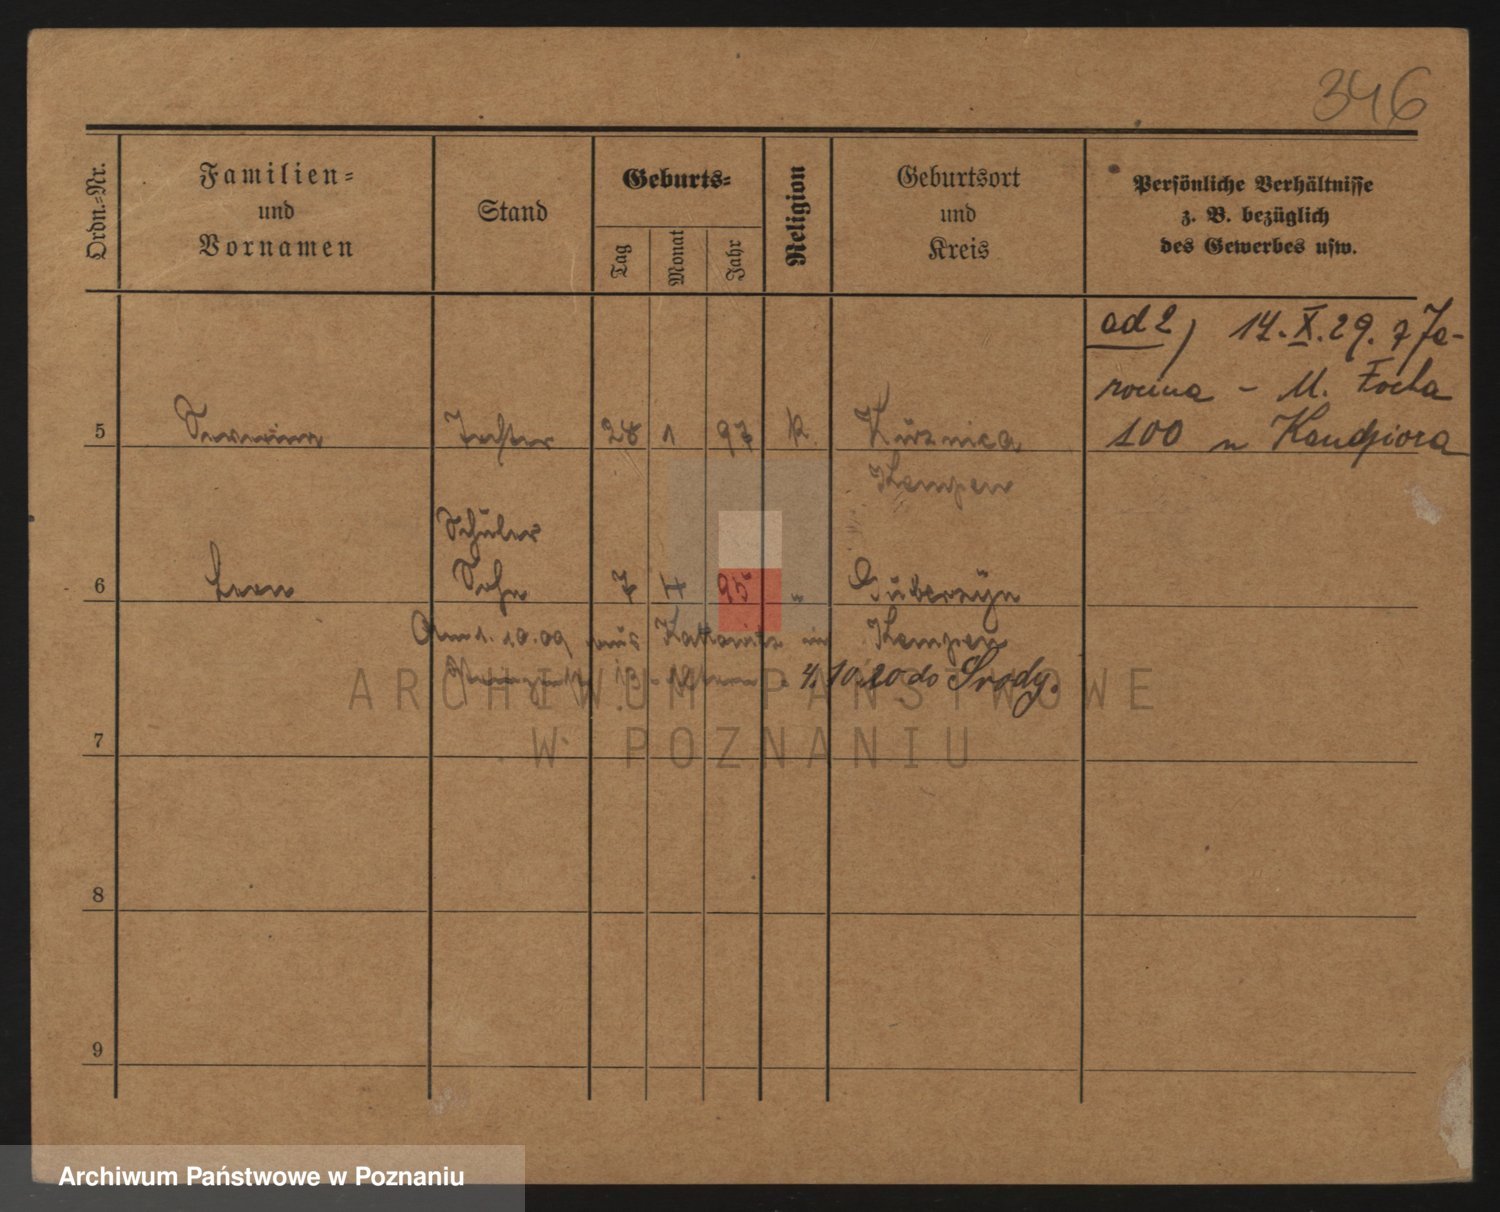 346
Ordn.-Nr.
Familien-
und
Vornamen
Stand
Geburts-
Tag
Monat
Jahr
Religion
Geburtsort
und
Kreis
Persönliche Verhältnisse
z. B. bezüglich
des Gewerbes usw.
ad 2) 14.X.29. z Ja-
rocina - M. Focha
100 u
5 Severina Tochter 28 1 97 K.
Kempen
Schüler
6 Leon Sohn 7 4 95 "
10.09 aus Kattowitz in Kempen
4.10.20 do Środy.
7
8
9
ARCHIWUM PAŃSTWOWE
W POZNANIU
Archiwum Państwowe w Poznaniu